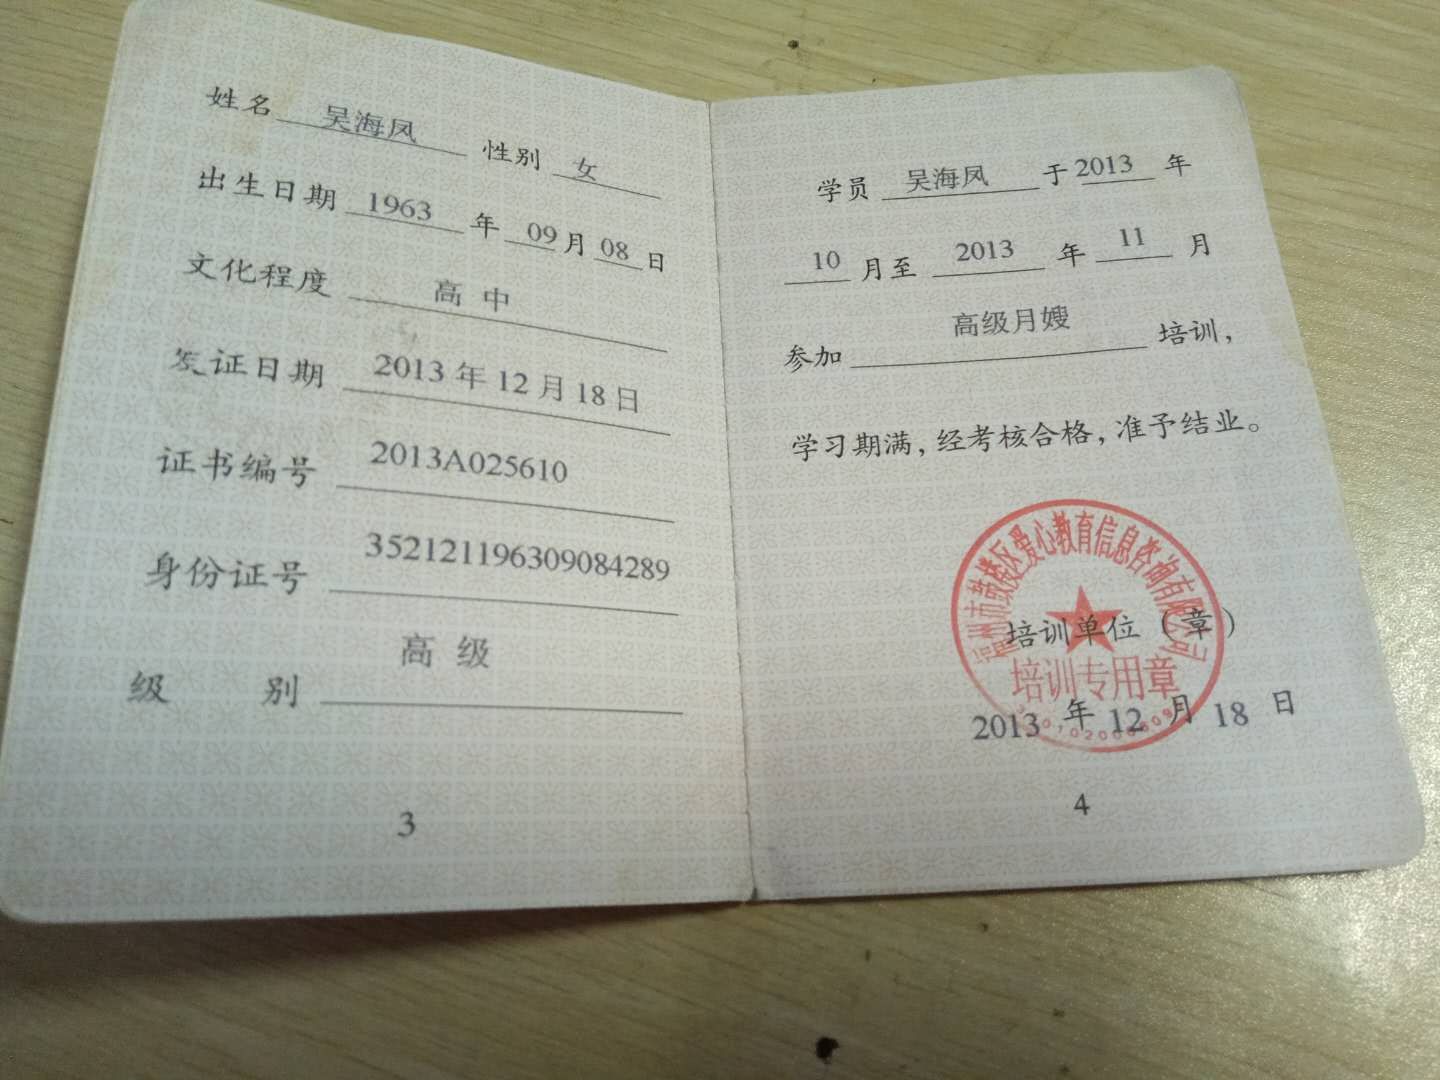 姓名 吴海凤 性别 女
出生日期 1963 年 09 月 08 日
文化程度 高 中
发证日期 2013 年 12 月 18 日
证书编号 2013A025610
身份证号 352121196309084289
高 级
级 别
3
学员 吴海凤 于 2013 年
10 月至 2013 年 11 月
高级月嫂
参加 培训，
学习期满，经考核合格，准予结业。
福州市鼓楼区爱心教育信息咨询有限公司
培训单位（章）
培训专用章
2013 年 12 月 18 日
4